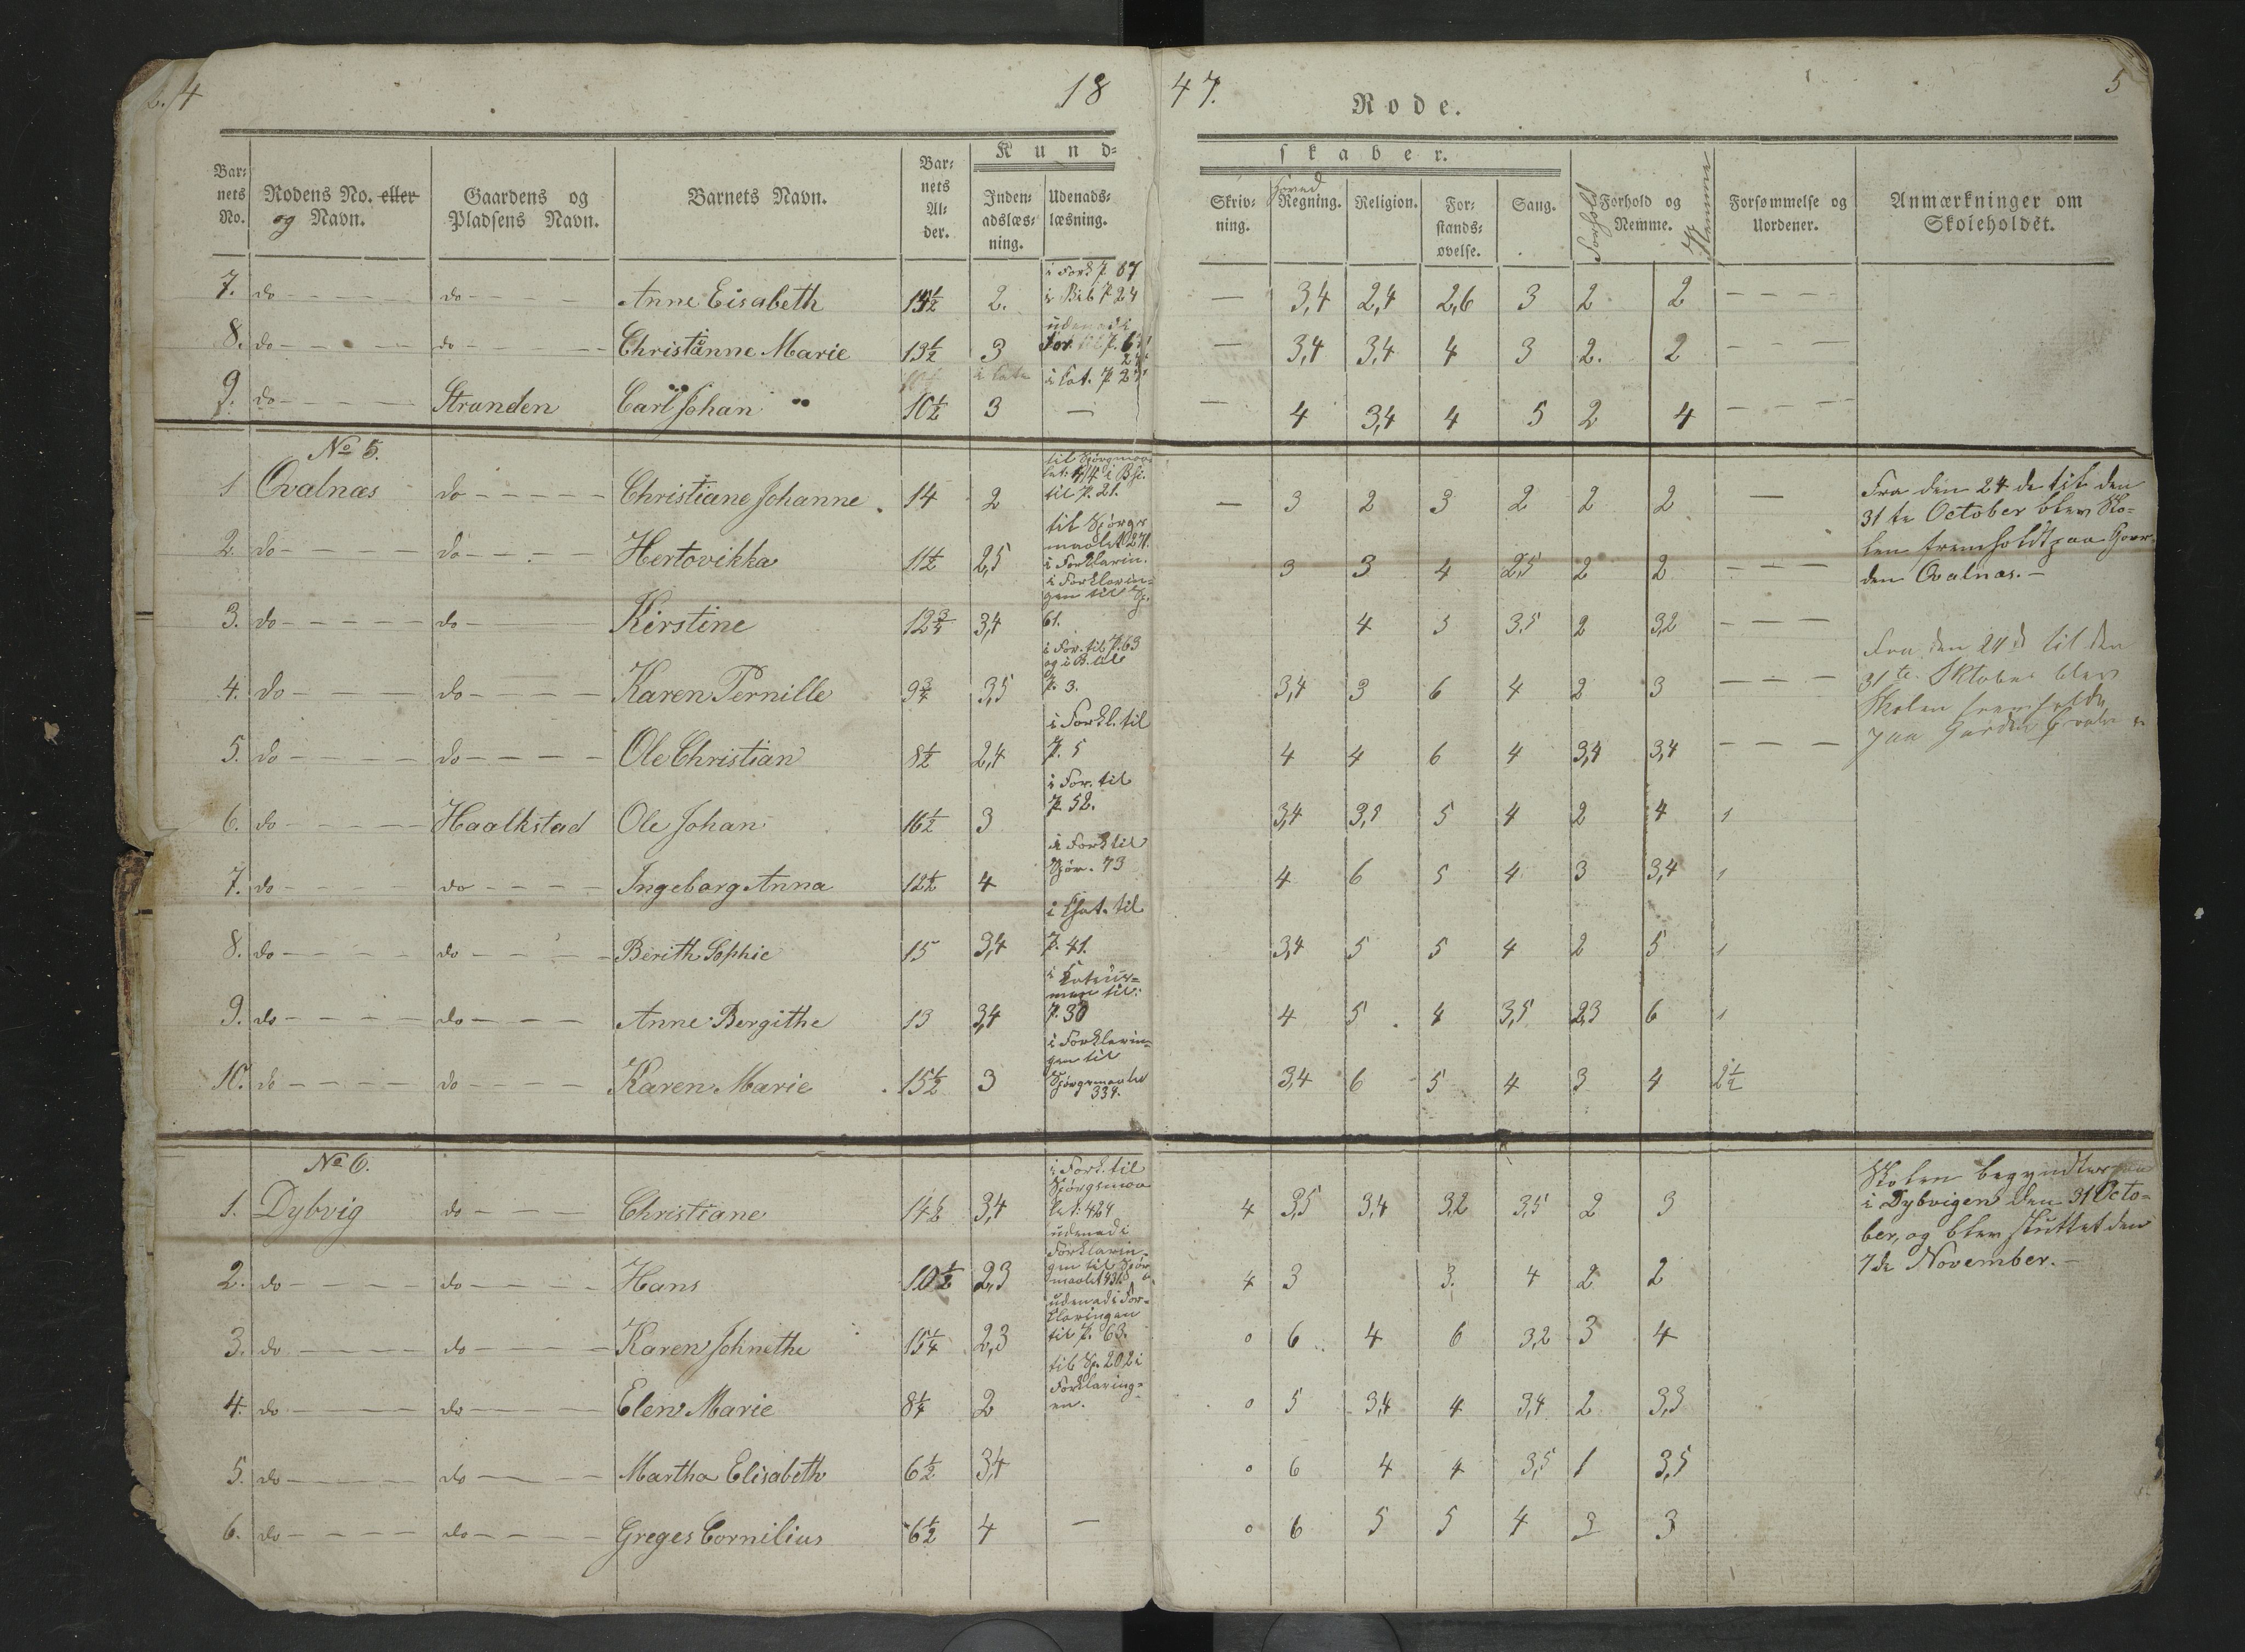 4 18 47. 5
Rode.
Kund- skaber.
Bar- nets No. Rodens No. eller og Navn. Gaardens og Pladsens Navn. Barnets Navn. Bar- nets Al- der. Inden- adslæs- ning. Udenads- læsning. Skriv- ning. Regning. Religion. For- stands- øvelse. Sang. Forhold og Nemme. Forhold Nemme Forsømmelse og Uordener. Anmærkninger om Skoleholdet.
7. do do Anne Eisabeth 2. i Fork. p 87 i Bib p 24 — 3,4 2,4 2,6 3 2 2
8. do do Christanne Marie 13½ 3 udenad i For — 3,4 3,4 4 3 2. 2
9. do Stranden Carl Johan 10½ 3 i Cat. p 27 — — 4 3,4 4 5 2 4
No 5.
1 Qvalnæs do Christiane Johanne 14 2 til p. 21. — 3 2 3 2 2 2 —
2. do do Hertovikka 11½ 2,5 til Spørgs maalet 271. i Forklarin. 3 3 4 2,5 2 2
3. do do Kirstine 12¾ 3,4 i Forklarin- gen til Sp. 61. 4 5 3.5 2 3,2
4. do do Karen Pernille 9¾ 3,5 i For. til p. 63 og i B. til p. 3. 3,4 3 6 4 2 3
5. do do Ole Christian 8½ 2,4 i Forkl. til p. 5 4 4 6 4 3,4 3,4
6. do Haalkstad Ole Johan 16½ 3 i For. til p. 52. 3,4 3,5 5 4 2 4 1
7. do do Ingeborg Anna 12½ 4 i Fork til Spør. 73 4 6 5 4 3 3,4 1
8. do do Berith Sophie 15 3,4 i Chat. til p. 41. 3,4 5 5 4 2 5 1
9. do do Anne Bergithe 13 3,4 til: p. 30 4 5 4 3,5 2,3 6 1
10. do do Karen Marie 15½ 3 i Forklarin- gen til Spørgsmaalet 334. 3,4 6 5 4 3 4 2½
Fra den 24de til den
31te October blev Sko-
len fremholdt paa Gaar-
den Qvalnæs. —
Fra den 24de til den
31te Oktober blev
Skolen fremholdt
paa Gården
No 6.
1. Dybvig do Christiane 14½ 3,4 i Fork. til Spørgsmaa let: 424 4 3,5 3,4 3,2 3,5 2 3
2. do do Hans 10½ 2,3 udenad i Forklarin- gen til Spør maalet 431. 4 3 3. 4 2 2
3. do do Karen Johnethe 15¼ 2,3 udenad i For- klaringen til p. 63. 0 6 4 6 3,2 3 4
4. do do Elen Marie 8¼ 2 til Sp. 202 i Forklaring- en. 0 5 3,4 4 3,4 2 3,3
5. do do Martha Elisabeth 6½ 3,4 0 6 4 4 3,5 1 3,5
6. do do Greges Cornilius 6½ 4 — 0 6 5 5 4 3 3
Skolen begyndtes
i Dybvigen den 31 Octo-
ber, og blev sluttet den
7de November. —